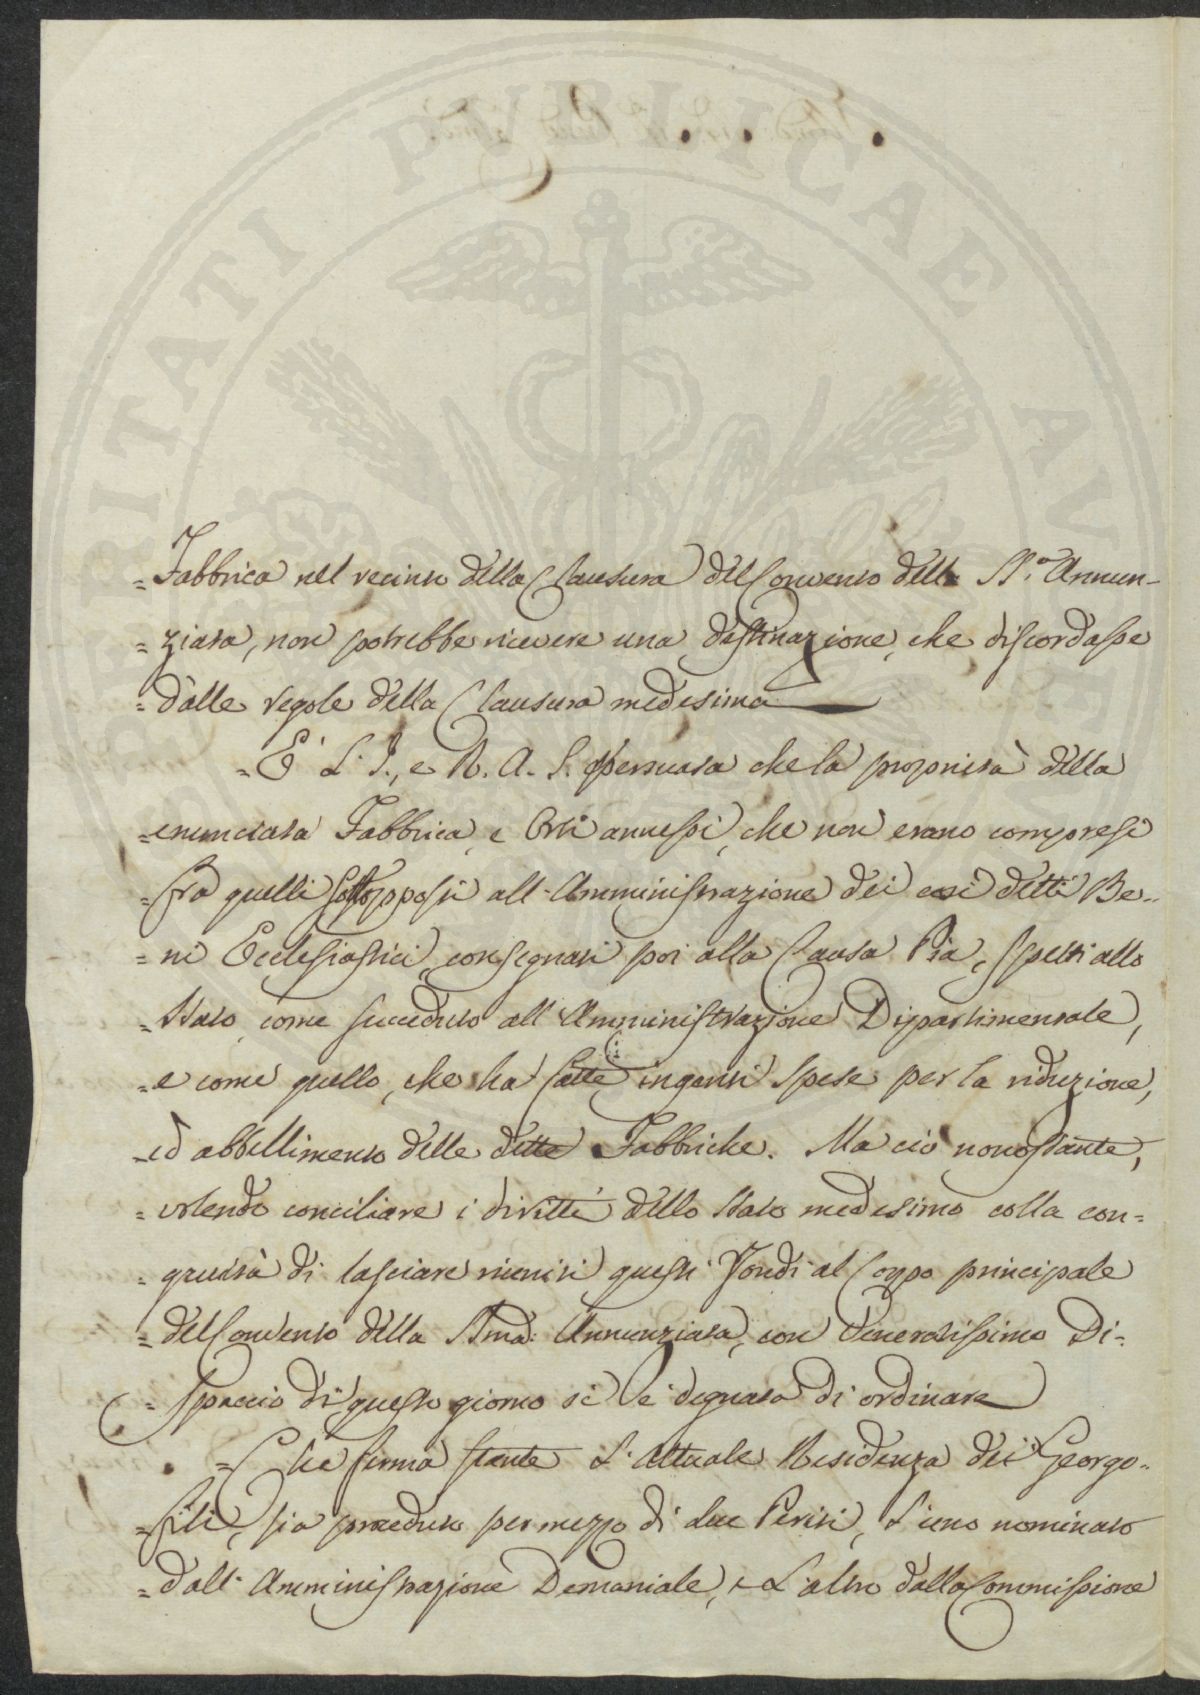 PROSPERITATI PUBLICAE AUGENDAE
=Fabbrica nel recinto della Clausura del Convento della SS.ma Annun-
=ziata, non potrebbe ricevere una destinazione, che discordasse
=dalle regole della Clausura medesima
=E' L' I., e R. A. S. persuasa che la proprietà della
=enunciata Fabbrica, e Orti annessi, che non erano compresi
=fra quelli sottoposti all'Amministrazione dei così detti Be-
=ni Ecclesiastici, consegnati poi alla Causa Pia, spetti allo
=Stato, come succeduto all'Amministrazione Dipartimentale,
=e come quello, che ha fatte ingenti spese per la riduzione,
=ed abbellimento delle dette Fabbriche. Ma ciò nonostante,
=volendo conciliare i diritti dello Stato medesimo colla con=
=gruità di lasciare riuniti questi Fondi al Corpo principale
=del Convento della SSma: Annunziata, con Veneratissimo Di=
=spaccio di questo giorno si è degnata di ordinare
=Che ferma stante L'attuale Residenza dei Georgo=
=fili, sia proceduto per mezzo di due Periti, L'uno nominato
=dall'Amministrazione Demaniale, e L'altro dalla Commissione